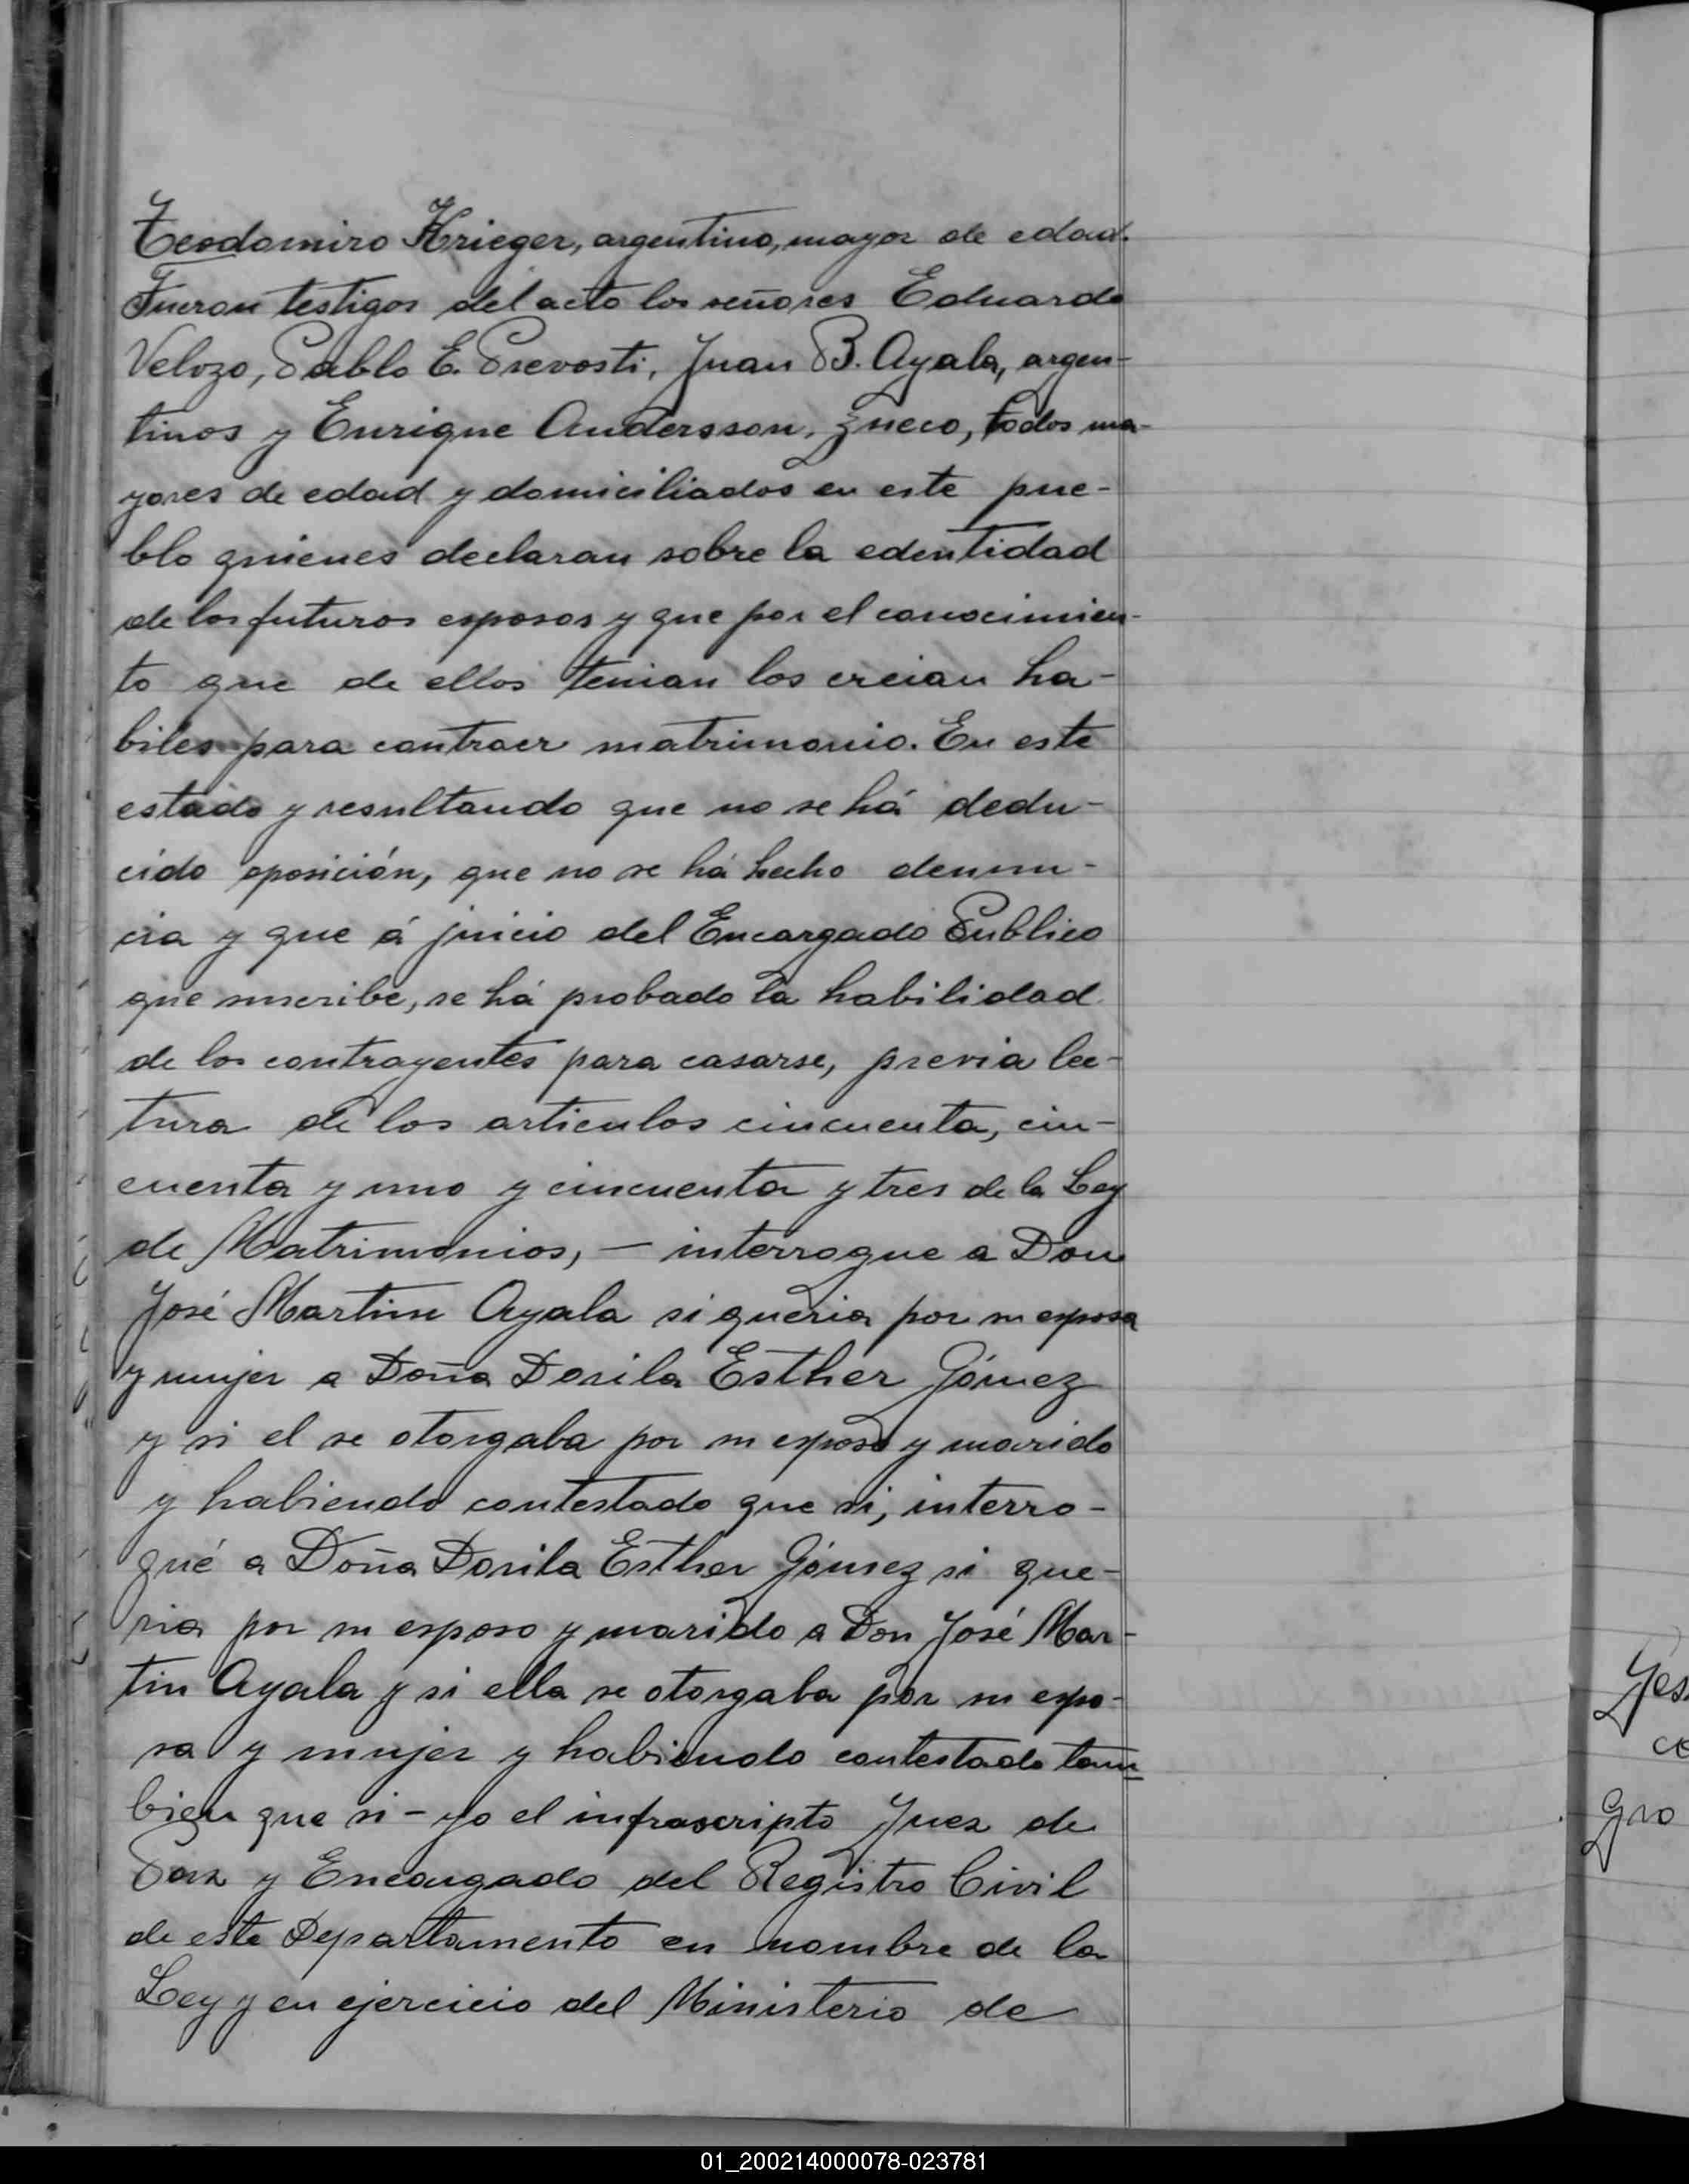 Teodomiro Krieger, argentino, mayor de edad.
Fueron testigos del acto los señores Eduardo
Velozo, Pablo E. Prevosti, Juan B. Ayala, argen-
tinos y Enrique Andersson, zueco, todos ma-
yores de edad y domiciliados en este pue-
blo quienes declaran sobre la edentidad
de los futuros esposos y que por el conocimien-
to que de ellos tenian los creian ha-
biles para contraer matrimonio. En este
estado y resultando que no se há dedu-
cido oposición, que no se há hecho denun-
cia y que á juicio del Encargado Publico
que suscribe, se há probado la habilidad
de los contrayentes para casarse, previa lec-
tura de los articulos cincuenta, cin-
cuenta y uno y cincuenta y tres de la Ley
de Matrimonios, — interrogue a Don
José Martin Ayala si queria por su esposa
y mujer a Doña Dorila Esther Gómez
y si el se otorgaba por su esposo y marido
y habiendo contestado que si, interro-
gué a Doña Dorila Esther Gómez si que-
ria por su esposo y marido a Don José Mar-
tin Ayala y si ella se otorgaba por su espo-
sa y mujer y habiendo contestado tam
bien que si - yo el infrascripto Juez de
Paz y Encargado del Registro Civil
de este Departamento en nombre de la
Ley y en ejercicio del Ministerio de
01_200214000078-023781